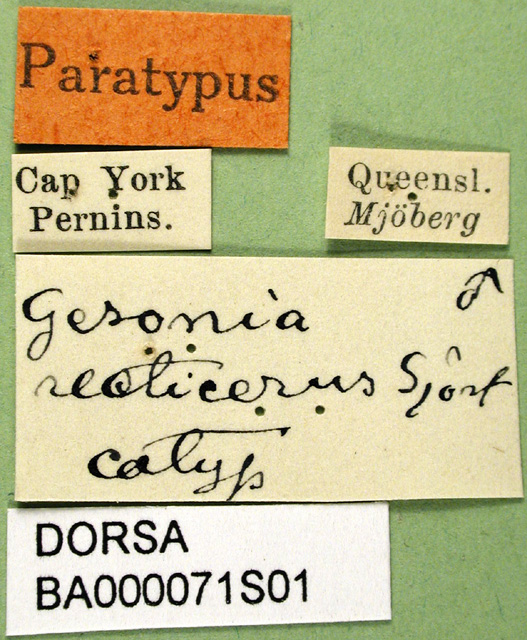 Paratypus
Cap York
Pernins.
Queensl.
Mjöberg
♂
Gesonia
recticerus Sjöst
cotyp
DORSA
BA000071S01